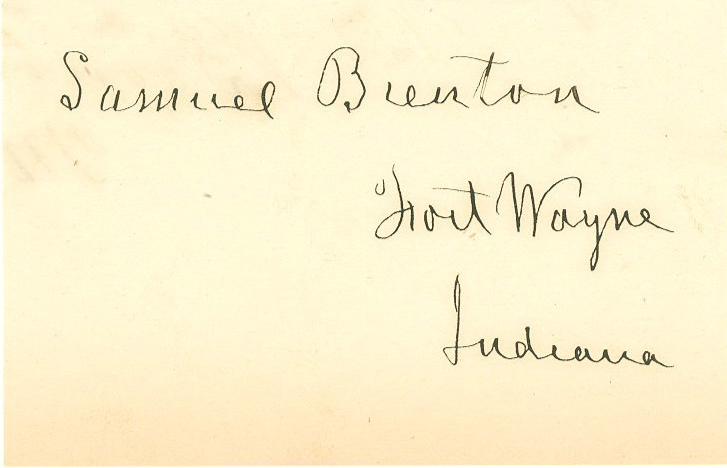 Samuel Brenton
Fort Wayne
Indiana